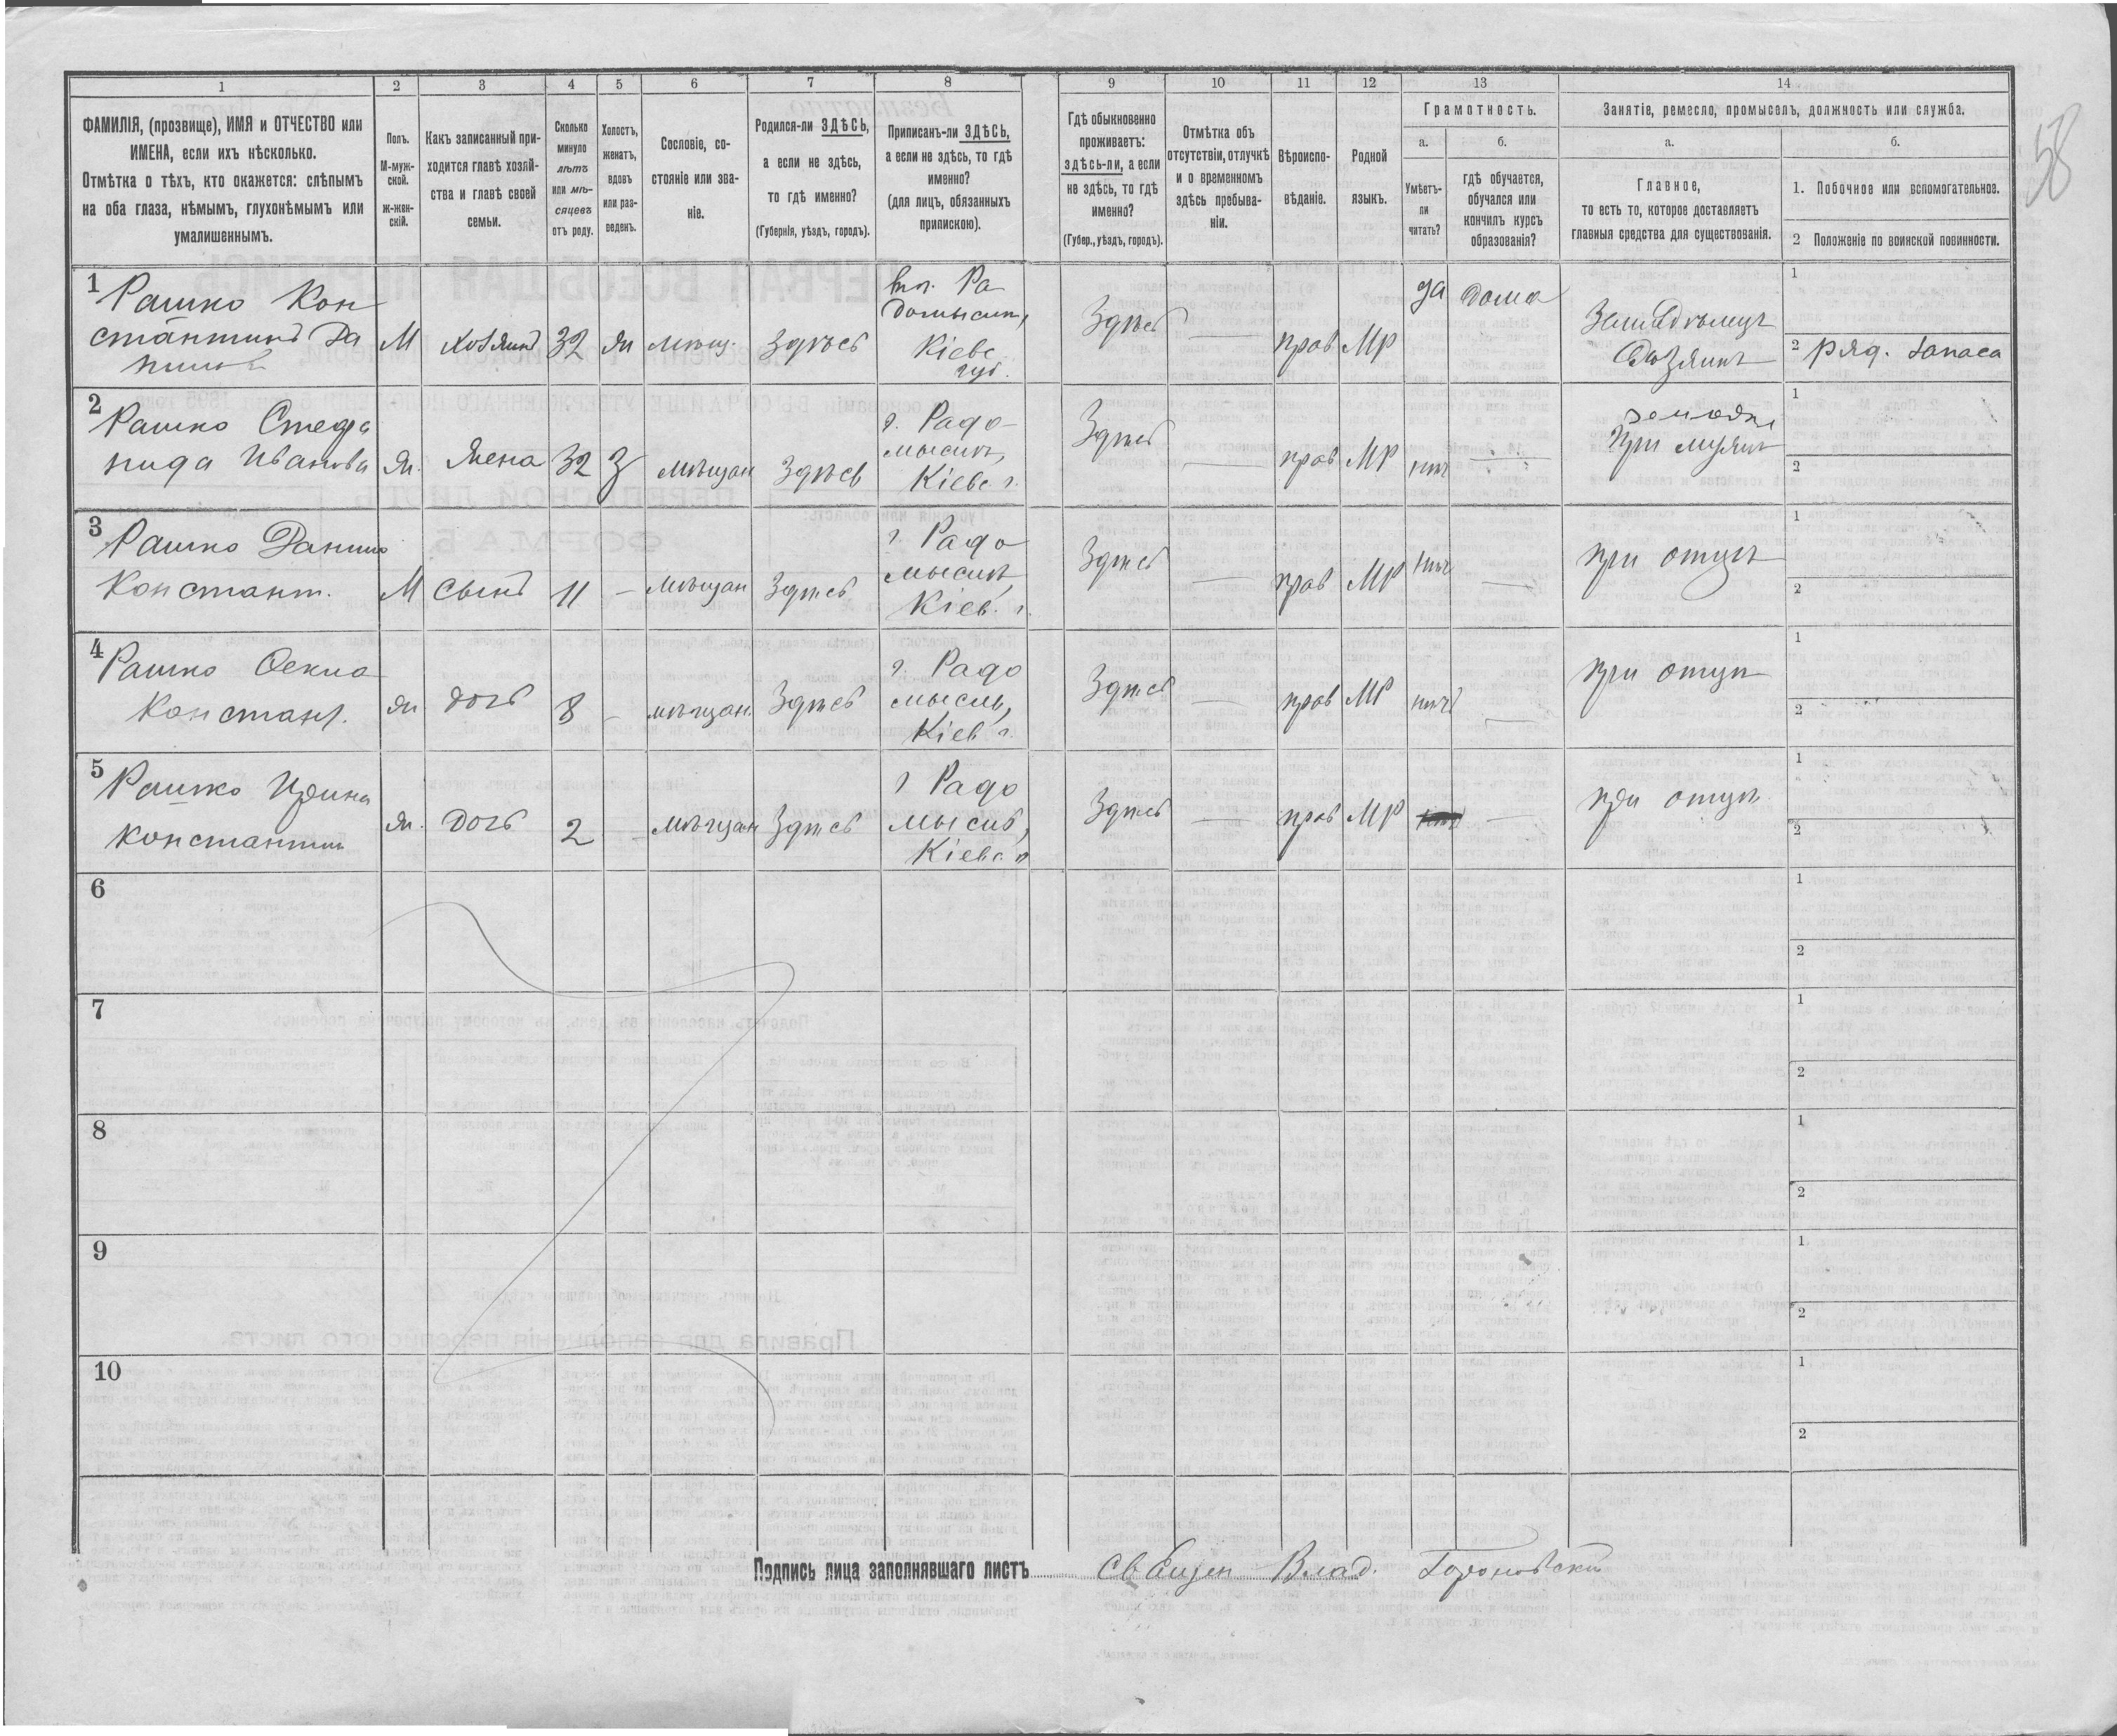 58
1 2 3 4 5 6 7 8 9 10 11 12 13 14
ФАМИЛІЯ, (прозвище), ИМЯ и ОТЧЕСТВО или
ИМЕНА, если ихъ нѣсколько.
Отмѣтка о тѣхъ, кто окажется: слѣпымъ
на оба глаза, нѣмымъ, глухонѣмымъ или
умалишеннымъ.
Полъ.
М-муж-
ской.
ж-жен-
скій.
Какъ записанный при-
ходится главѣ хозяй-
ства и главѣ своей
семьи.
Сколько
минуло
лѣтъ
или мѣ-
сяцевъ
отъ роду.
Холостъ,
женатъ,
вдовъ
или раз-
веденъ.
Сословіе, со-
стояніе или зва-
ніе.
Родился-ли ЗДѢСЬ,
а если не здѣсь,
то гдѣ именно?
(Губернія, уѣздъ, городъ).
Приписанъ-ли ЗДѢСЬ,
а если не здѣсь, то гдѣ
именно?
(для лицъ, обязанныхъ
припискою).
Гдѣ обыкновенно
проживаетъ:
здѣсь-ли, а если
не здѣсь, то гдѣ
именно?
(Губер., уѣздъ, городъ).
Отмѣтка объ
отсутствіи, отлучкѣ
и о временномъ
здѣсь пребыва-
ніи.
Вѣроиспо-
вѣданіе.
Родной
языкъ.
Грамотность.
а.
Умѣетъ-
ли
читать?
б.
гдѣ обучается,
обучался или
кончилъ курсъ
образованія?
Занятіе, ремесло, промыселъ, должность или служба.
а.
Главное,
то есть то, которое доставляетъ
главныя средства для существованія.
б.
1. Побочное или вспомогательное.
2 Положеніе по воинской повинности.
1
Рашко Кон
стантинъ Да
М
хозяинъ
32
ж
мѣщ.
Здѣсь
Ра
домысль,
Кіевс
губ.
Здѣсь
—
прав
МР
да
дома
Земледѣлецъ
хозяинъ
1
2 ряд. запаса
2
Рашко Стефа
нида Иванова
ж.
жена
32
З
мѣщан
Здѣсь
г. Радо-
мысль,
Кіевс г.
Здѣсь
—
прав
МР
нѣт
—
при мужѣ
1
2
3
Рашко Данило
Констант.
М
сынъ
11
—
мѣщан
Здѣсь
г. Радо
мысль,
Кіев. г.
Здѣсь
—
прав
МР
нѣт
—
при отцѣ
1
2
4
Рашко Фекла
Констант.
ж
дочь
8
—
мѣщан.
Здѣсь
г. Радо
мысль,
Кіев г.
Здѣсь
—
прав
МР
нѣтъ
—
при отцѣ
1
2
5
Рашко Ирина
Константин
ж.
дочь
2
—
мѣщан
Здѣсь
г Радо
мысль,
Кіевс г
Здѣсь
—
прав
МР
—
при отцѣ.
1
2
6
1
2
7
1
2
8
1
2
9
1
2
10
1
2
Подпись лица заполнявшаго листъ Священ Влад.